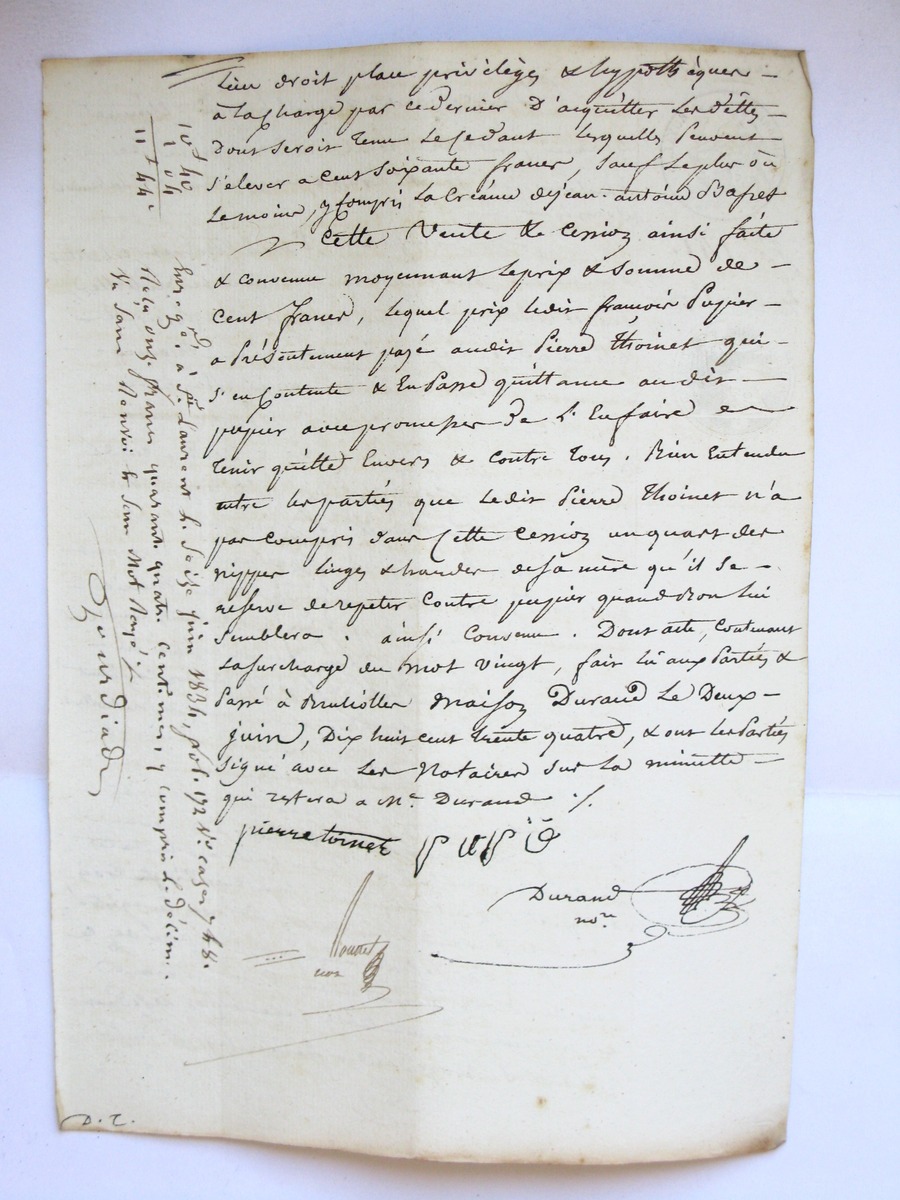 Lieu droit place privilèges & hypothèques –
à la Charge par ce dernier D'acquitter les dettes –
Dont seroit tenu le Cedant lesquelles peuvent
s'elever a cent soixante francs, sauf le plus ou
le moins, y Compris la Créance de jean-antoine
Cette Vente & Cession ainsi faite
& convenue moyennant le prix & somme de –
Cent francs, lequel prix ledit françois Pupier –
a Présentement payé audit Pierre Thoinet qui –
s'en Contente & En Passe quittance audit –
pupier avec promesse De l'En faire &
tenir quitte Envers & Contre Tous. Bien Entendu
entre les parties que ledit Pierre Thoinet n'a
pas Compris dans Cette Cession un quart des
nippes linges & hardes de sa mère qu'il se –
reserve de repeter Contre pupier quand Bon lui
Semblera. ainsi Convenu. Dont acte, Contenant
la surcharge du mot vingt, fait lu aux Parties &
Passé à maison Durand Le Deux –
juin, Dix huit cent trente quatre, & ont les Parties
signé avec les Notaires sur la minutte –
qui restera a Me. Durand ./.
pierre toinet PUPIE
Durand
nore.
nore
D. T.
10f 40
1 04
11f 44c
Enregré. à St. Laurent le Seize juin 1834, fol. 172 Vo. cases 7 & 8.
Reçu onze francs quarante quatre centimes, y compris le décime.
Vu Sans Renvoi & Sans Mot Rayé ./.